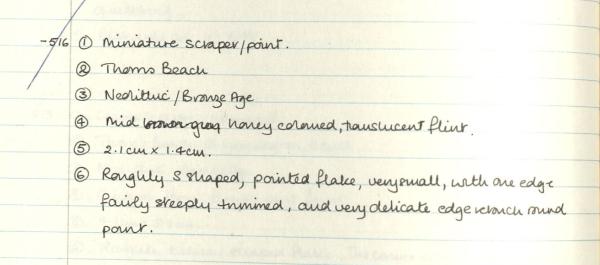 -516 ① Miniature scraper/point.
② Thorns Beach
③ Neolithic/Bronze Age
④ Mid brown-grey honey coloured, translucent flint.
⑤ 2.1cm x 1.4cm.
⑥ Roughly S shaped, pointed flake, very small, with one edge
fairly steeply trimmed, and very delicate edge retouch round
point.